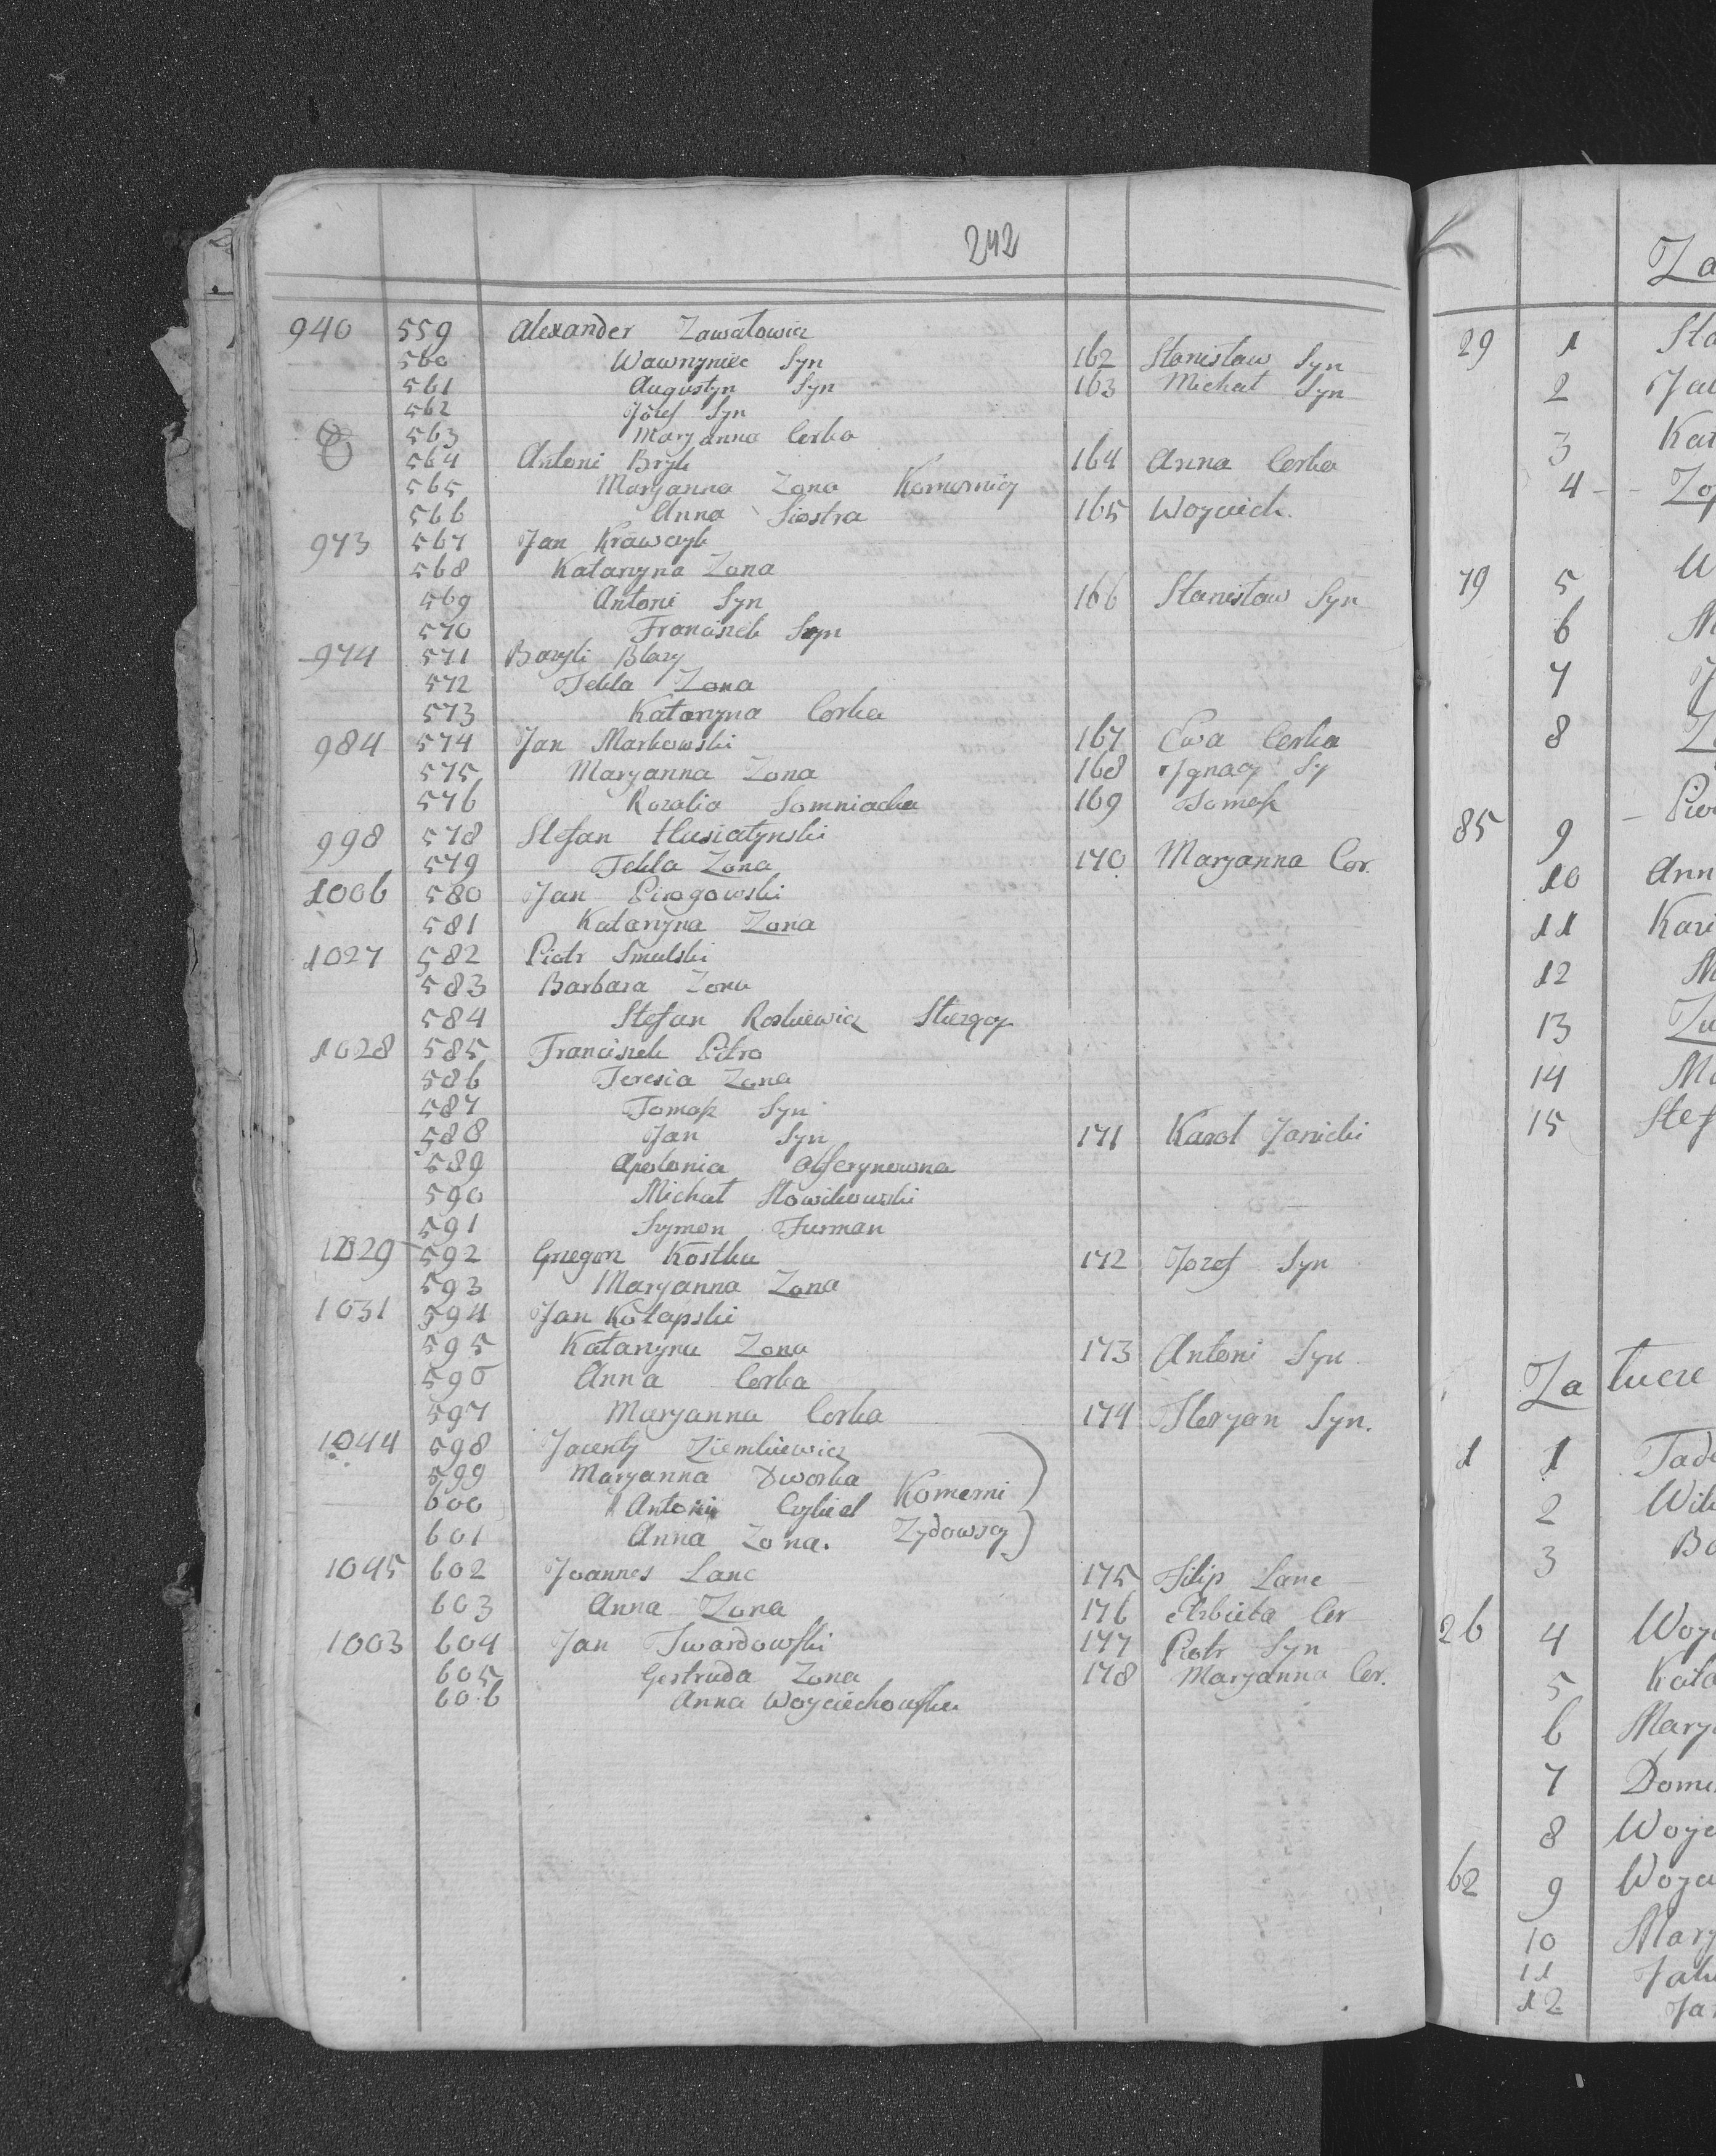 242
940 559 Alexander Zawałowicz
560 Wawrzyniec Syn 162 Stanisław Syn
561 Augustyn Syn 163 Michał Syn
562 Józef Syn
563 Maryanna Corka
564 Antoni Bryk 164 Anna Corka
565 Maryanna Zona Komornicy
566 Anna Siostra 165 Woyciech.
973 567 Jan Krawczyk
568 Katarzyna Zona
569 Antoni Syn 166 Stanisław Syn
570 Franciszek Syn
974 571 Bazyli Blazy
572 Tekla Zona
573 Katarzyna Corka
984 574 Jan Markowski 167 Ewa Corka
575 Maryanna Zona 168 Ignacy Sy
576 Rozalia Somniacka 169 Tomasz
998 578 Stefan Husiatynski
579 Tekla Zona 170 Maryanna Cor.
1006 580 Jan Pirogowski
581 Katarzyna Zona
1027 582 Piotr Smulski
583 Barbara Zona
584 Stefan Roskiewicz
1028 585 Franciszek Petro
586 Teresia Zona
587 Tomasz Syn
588 Jan Syn 171 Karol Janicki
589 Apolonia
590 Michał Słowikowski
591 Szymon Furman
1029 592 Grzegorz Kostka 172 Jozef Syn
593 Maryanna Zona
1031 594 Jan Kołapski
595 Katarzyna Zona 173 Antoni Syn
596 Anna Corka
597 Maryanna Corka 174 Floryan Syn.
1044 598 Jacenty Ziemkiewicz
599 Maryanna Dworka
600 Antoni Cybiel Komorni
601 Anna Zona. Zydowscy
1045 602 Joannes Lanc 175 Filip Lanc
603 Anna Zona 176 Elzbieta Cor
1003 604 Jan Twardowski 177 Piotr Syn
605 Gertruda Zona 178 Maryanna Cor.
606 Anna Woyciechowska
Za
29 1 Sta
2
3 Kat
4
79 5 W
6
7
8
85 9
10 Ann
11 Kazi
12
13
14
15 Stef
Za
1 1 Tade
2
3
26 4 Woyc
5 Kata
6 Marya
7 Domi
8 Woyc
62 9 Woyc
10 Mary
11 Jak
12 Ja